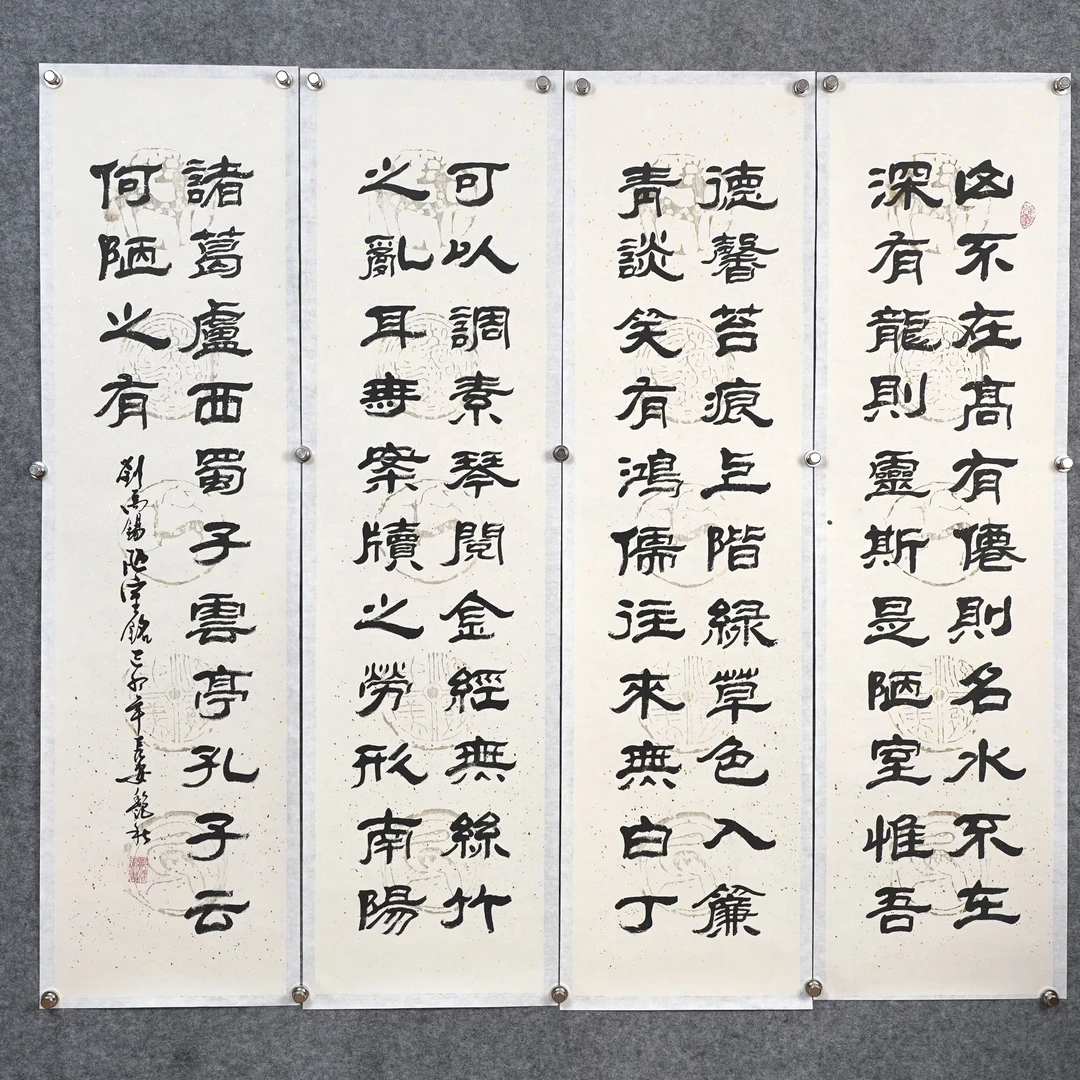 山不在髙有僊則名水不在
深有龍則靈斯是陋室惟吾
德馨苔痕上階綠草色入簾
青談笑有鴻儒往來無白丁
可以調素琴閱金經無絲竹
之亂耳無案牘之勞形南陽
諸葛盧西蜀子雲亭孔子云
何陋之有
劉禹錫陋室銘己卯年長安魏